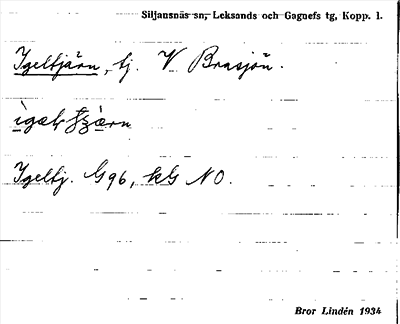 Siljansnäs sn, Leksands och Gagnefs tg, Kopp. l.
Igeltjärn, tj. V Brasjön.
Igeltj. G96, kG NO.
Bror Lindén 1934